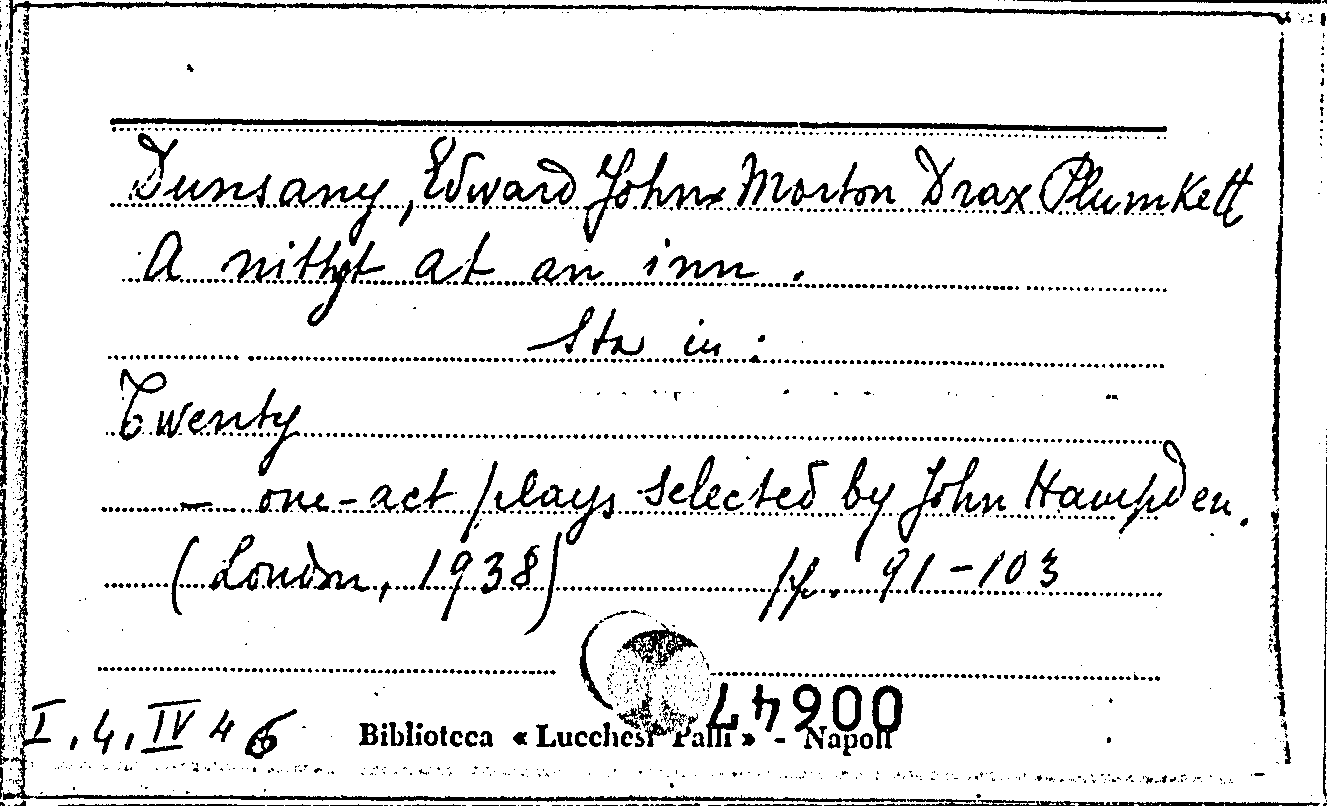 Dunsany, Edward John Morton Drax Plumkett
A nithgt at an inn.
Sta in:
Twenty
— one-act plays selected by John Hampden.
(London, 1938) pp. 91-103
00647
I.4.IV 46 Biblioteca « Lucchesi Palli » - Napoli